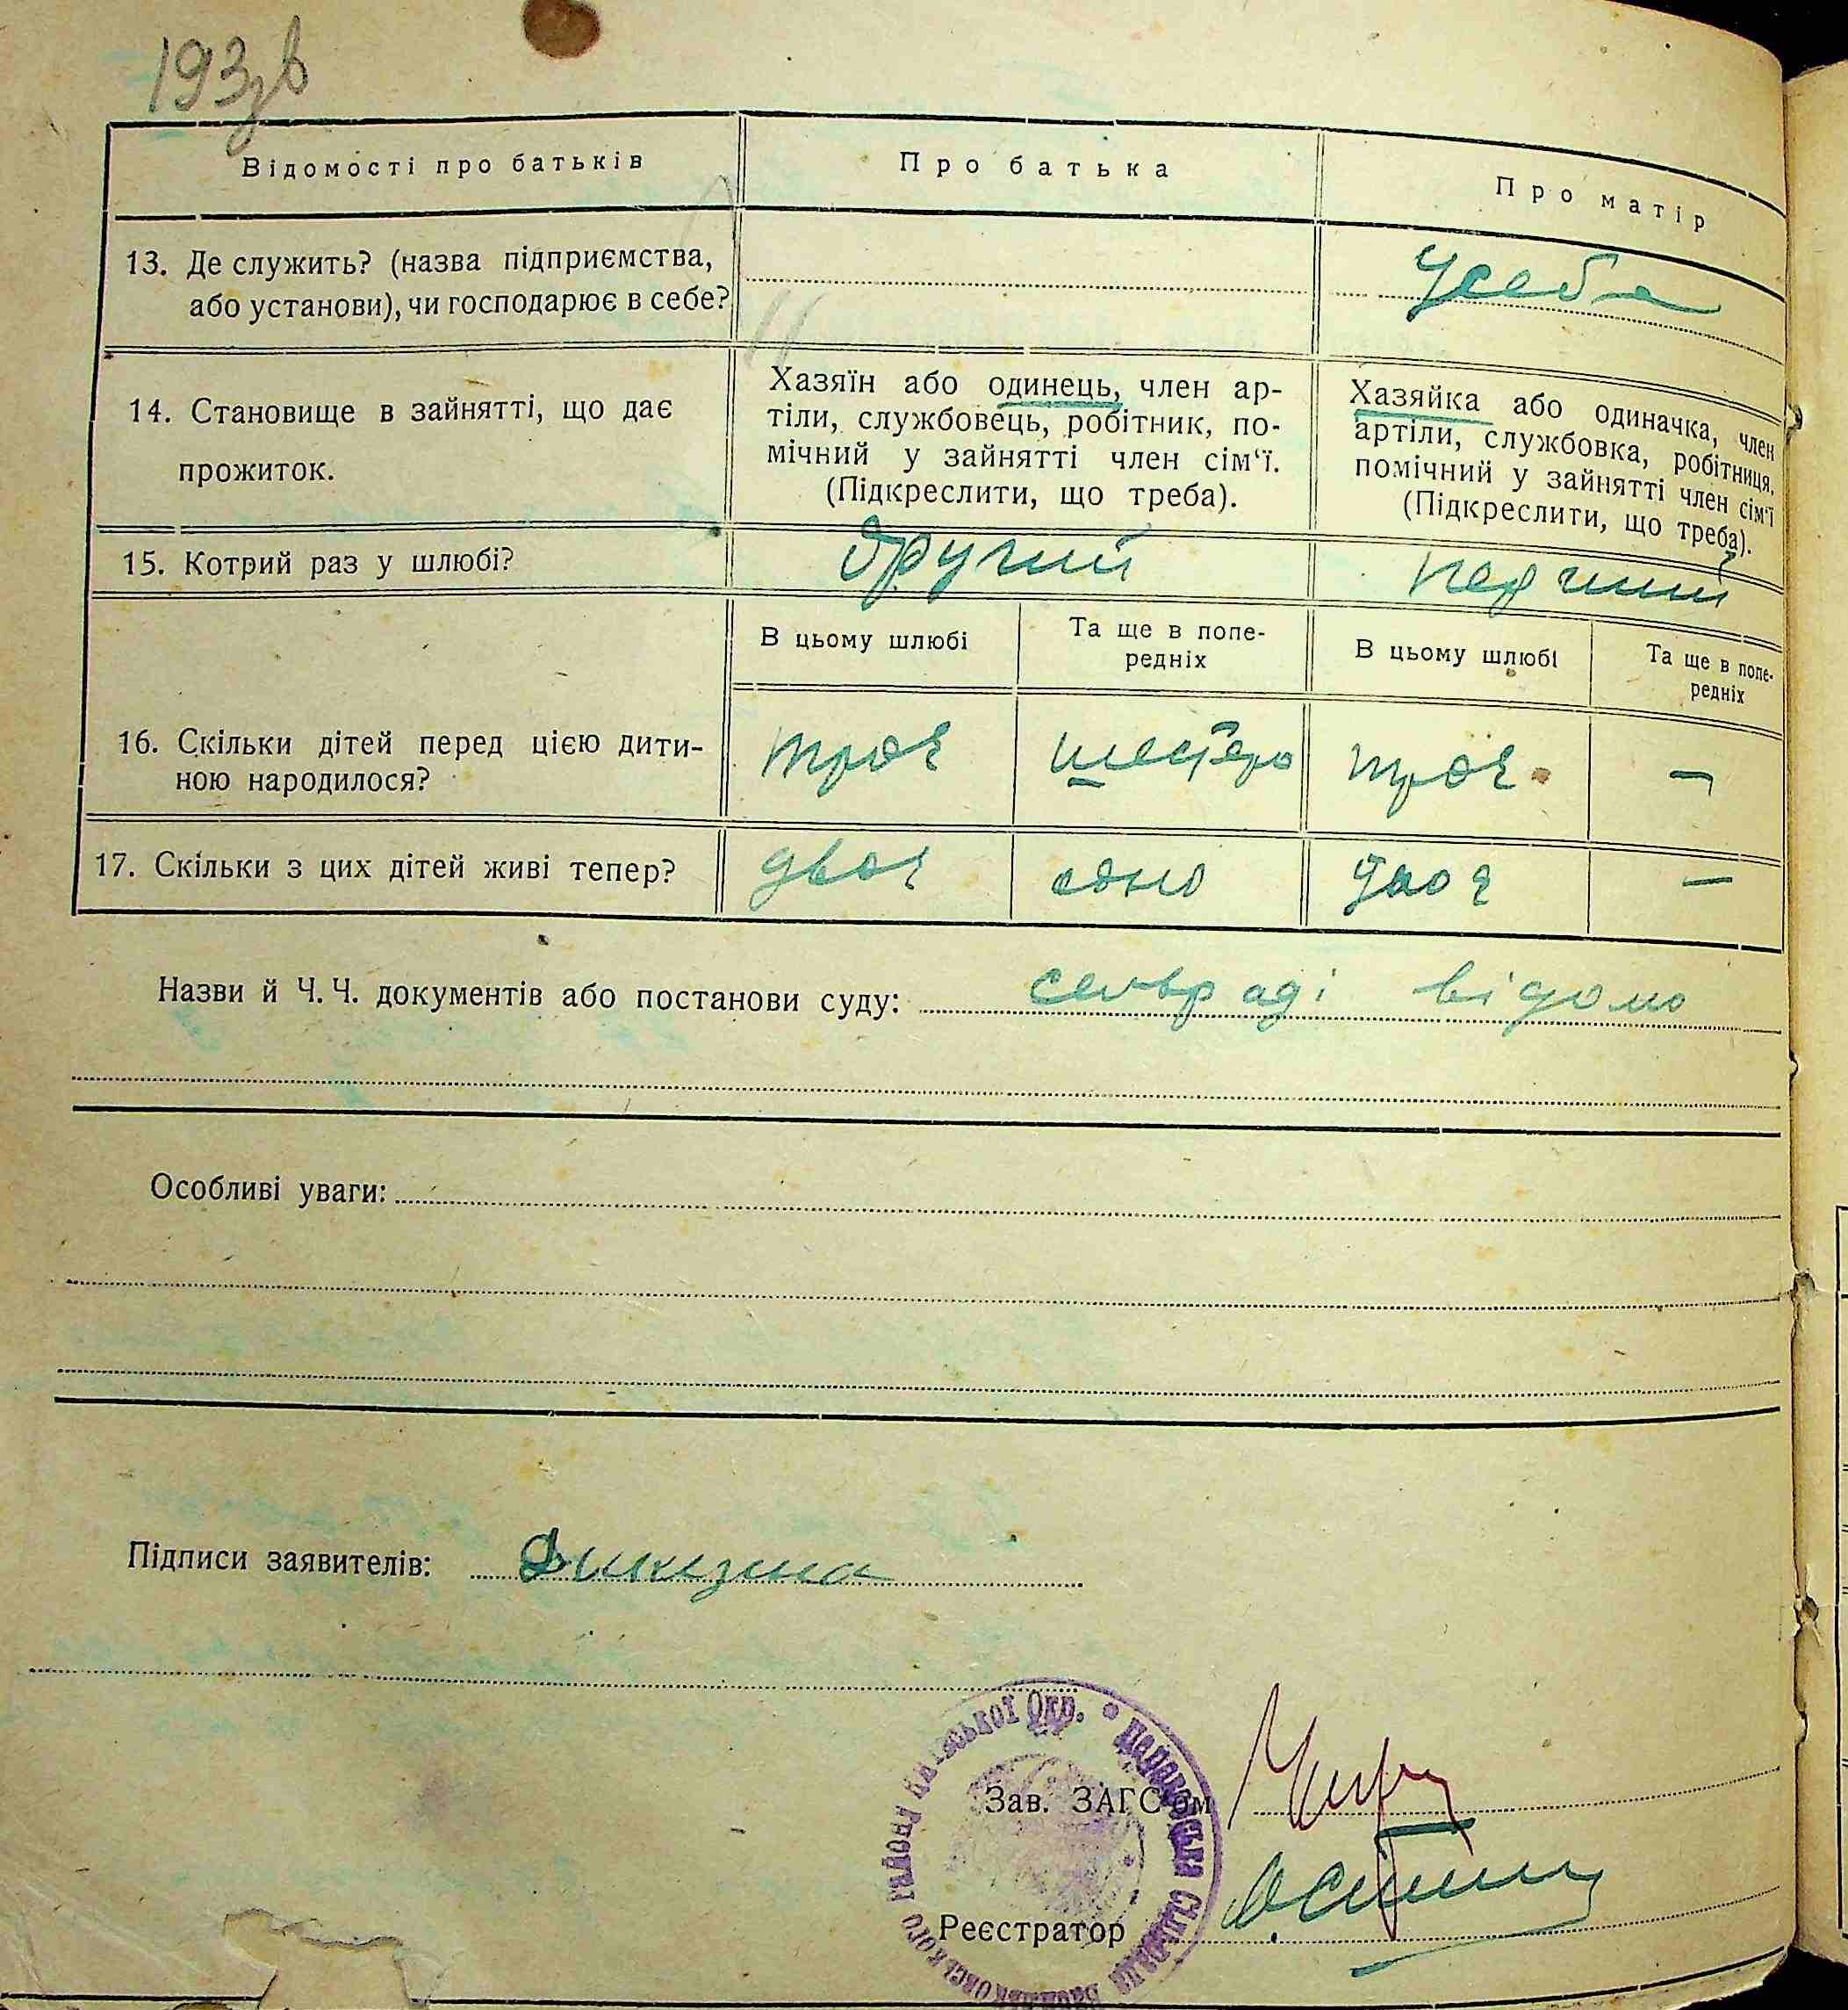 193зв
Відомості про батьків
Про батька
Про матір
13. Де служить? (назва підприємства,
або установи), чи господарює в себе?
У себе
14. Становище в зайнятті, що дає
прожиток.
Хазяїн або одинець, член ар-
тіли, службовець, робітник, по-
мічний у зайнятті член сім‘ї.
(Підкреслити, що треба).
Хазяйка або одиначка, член
артіли, службовка, робітниця,
помічний у зайнятті член сім‘ї
(Підкреслити, що треба).
15. Котрий раз у шлюбі?
другий
перший
В цьому шлюбі
Та ще в попе-
редніх
В цьому шлюбі
Та ще в попе-
редніх
16. Скільки дітей перед цією дити-
ною народилося?
троє
шестеро
троє
—
17. Скільки з цих дітей живі тепер?
двоє
одно
двоє
—
Назви й Ч. Ч. документів або постанови суду: сельраді відомо
Особливі уваги:
Підписи заявителів:
Зав. ЗАГС‘ом
Реєстратор
сільрада
району Київської Окр.